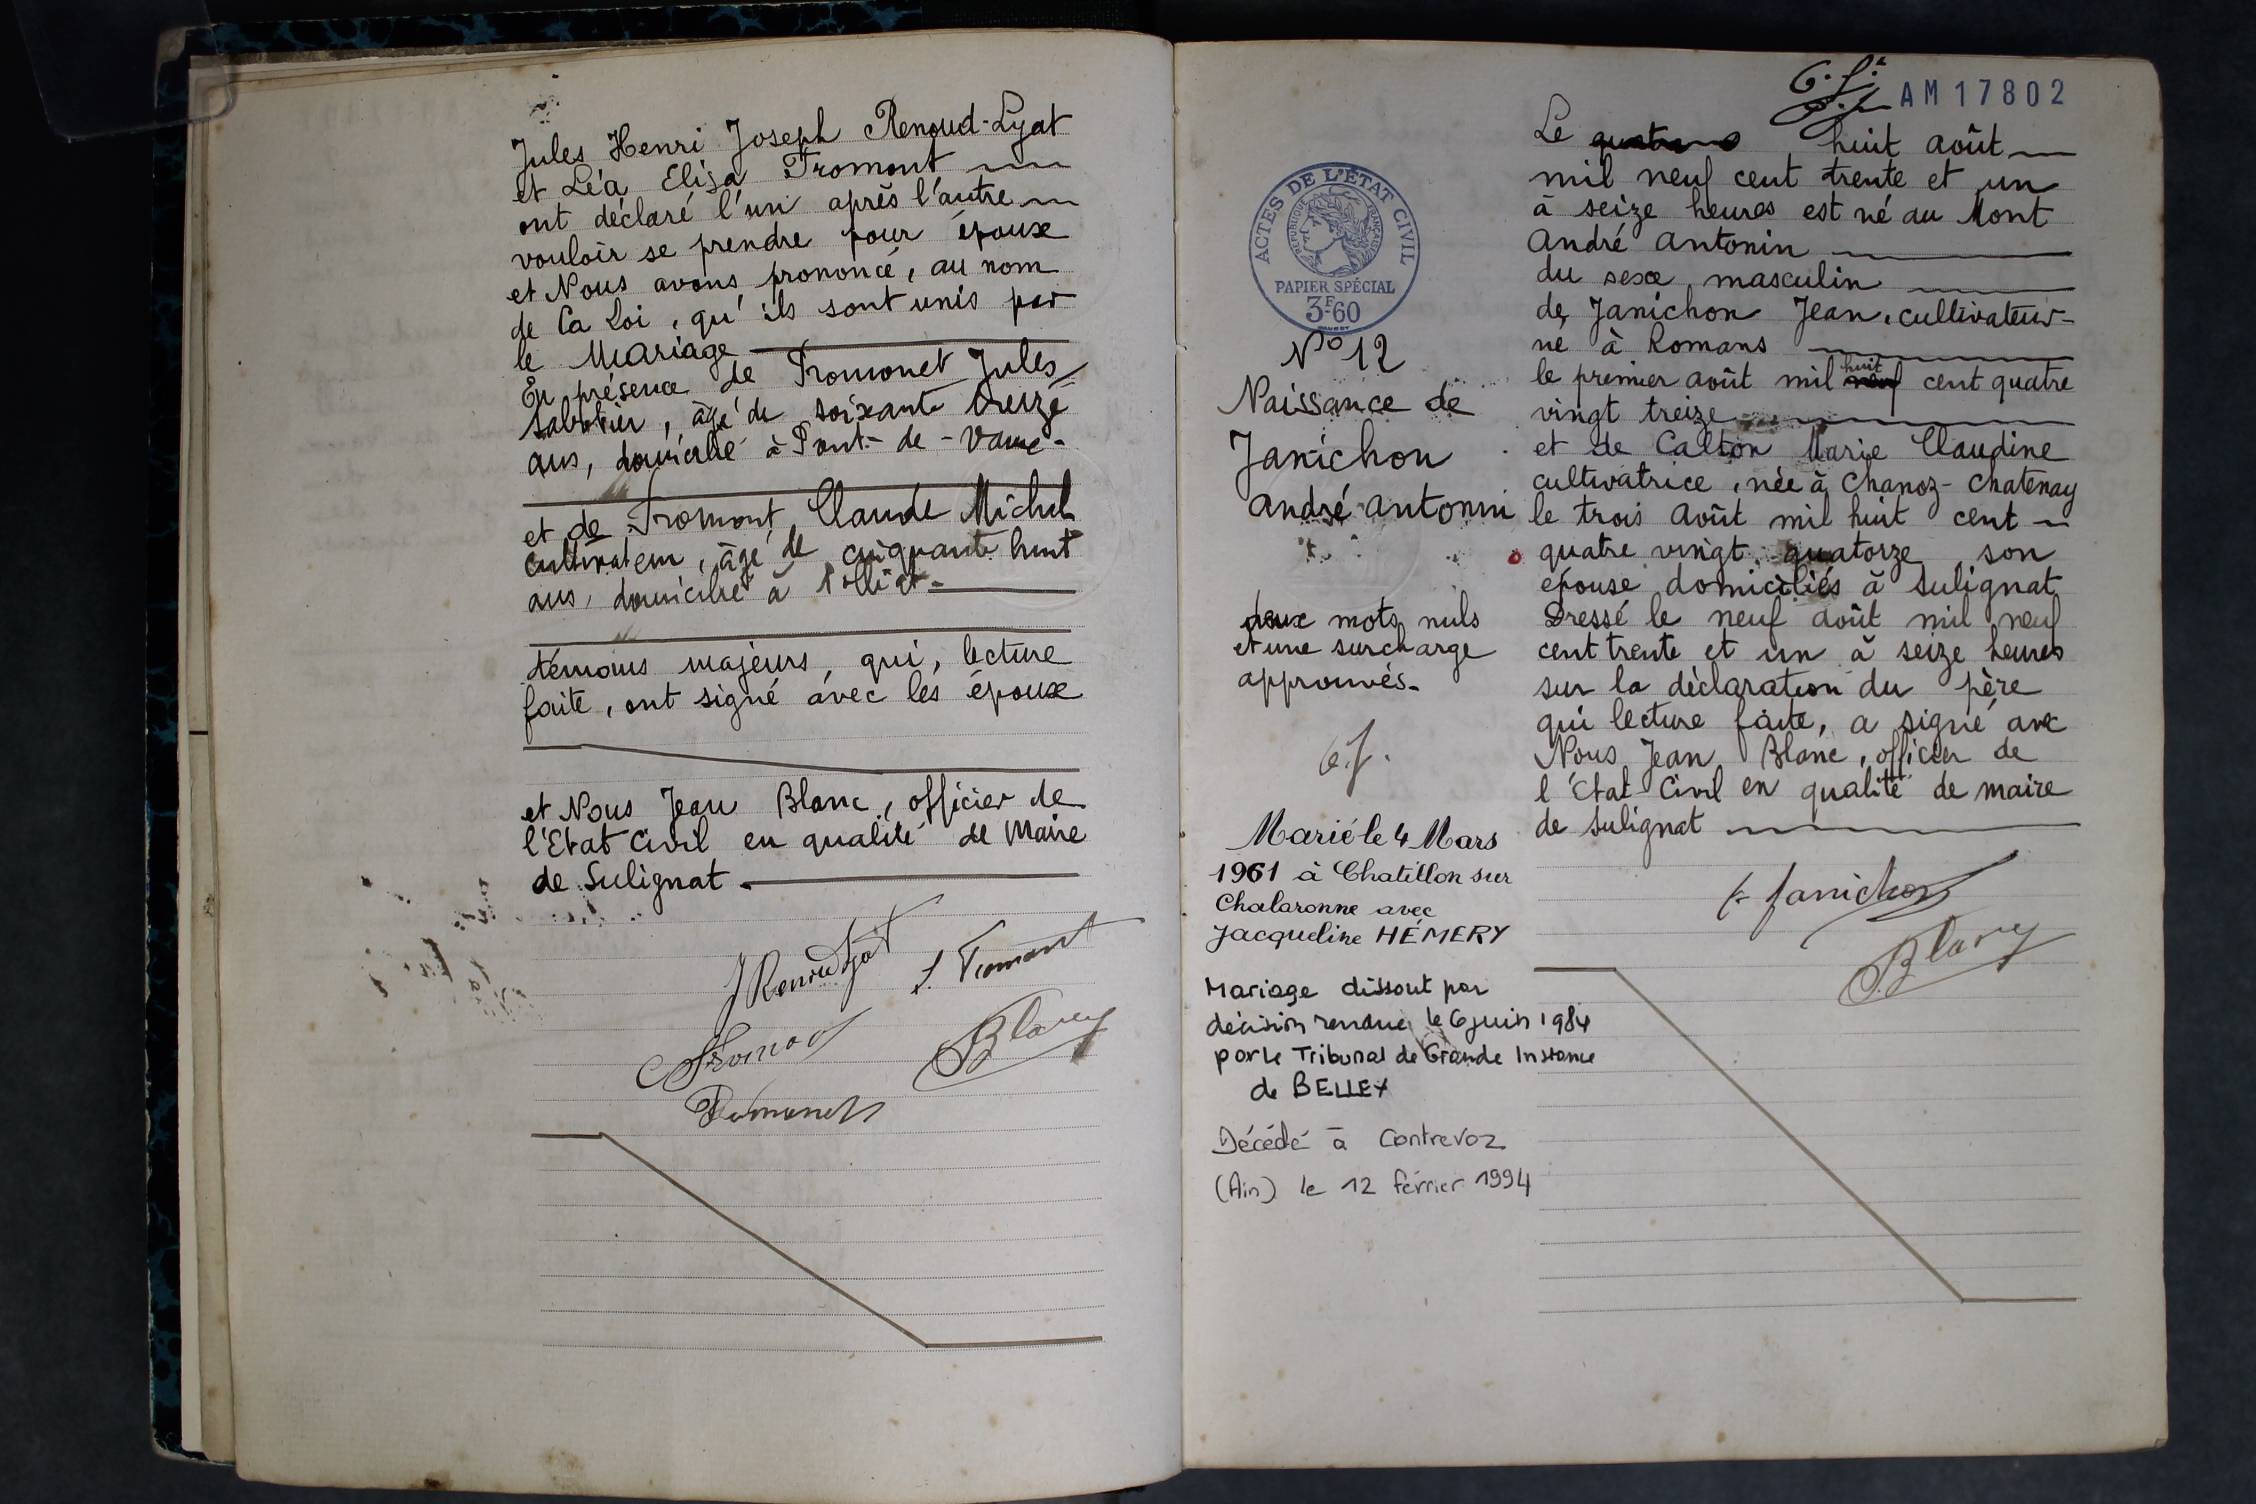 Jules Henri Joseph Renoud-Lyat
et Léa Elisa Fromont
ont déclaré l'un après l'autre
vouloir se prendre pour époux
et Nous avons prononcé, au nom
de la Loi, qu'ils sont unis par
le Mariage
En présence de Fromont Jules
sabotier, âgé de soixante treize
ans, domicilié à Pont-de-Vaux-
et de Fromont Claude Michel
cultivateur, âgé de cinquante huit
ans, domicilié à
témoins majeurs, qui, lecture
faite, ont signé avec les époux
et Nous Jean Blanc, officier de
l'Etat Civil en qualité de Maire
de Sulignat.
J Renoud Lyat
Fromont
Blanc
ACTES DE L'ÉTAT CIVIL
RÉPUBLIQUE FRANÇAISE
PAPIER SPÉCIAL
3F.60
N° 12
Naissance de
Janichon
André Antonin
deux mots nuls
et une surcharge
approuvés.
Marié le 4 Mars
1961 à Chatillon sur
Chalaronne avec
Jacqueline HÉMERY
Mariage dissout par
décision rendue le 6 juin 1984
par le Tribunal de Grande Instance
de BELLEY
Décédé à Contrevoz
(Ain) le 12 février 1994
AM17802
Le huit août
mil neuf cent trente et un
à seize heures est né au Mont
André Antonin
du sexe masculin
de Janichon Jean, cultivateur-
né à Romans
le premier août mil huit cent quatre
vingt treize
et de Calton Marie Claudine
cultivatrice, née à Chanoz-Chatenay
le trois août mil huit cent
quatre vingt quatorze son
épouse domiciliés à Sulignat
Dressé le neuf août mil neuf
cent trente et un à seize heures
sur la déclaration du père
qui lecture faite, a signé avec
Nous Jean Blanc, officier de
l'Etat Civil en qualité de maire
de Sulignat
Janichon
Blanc